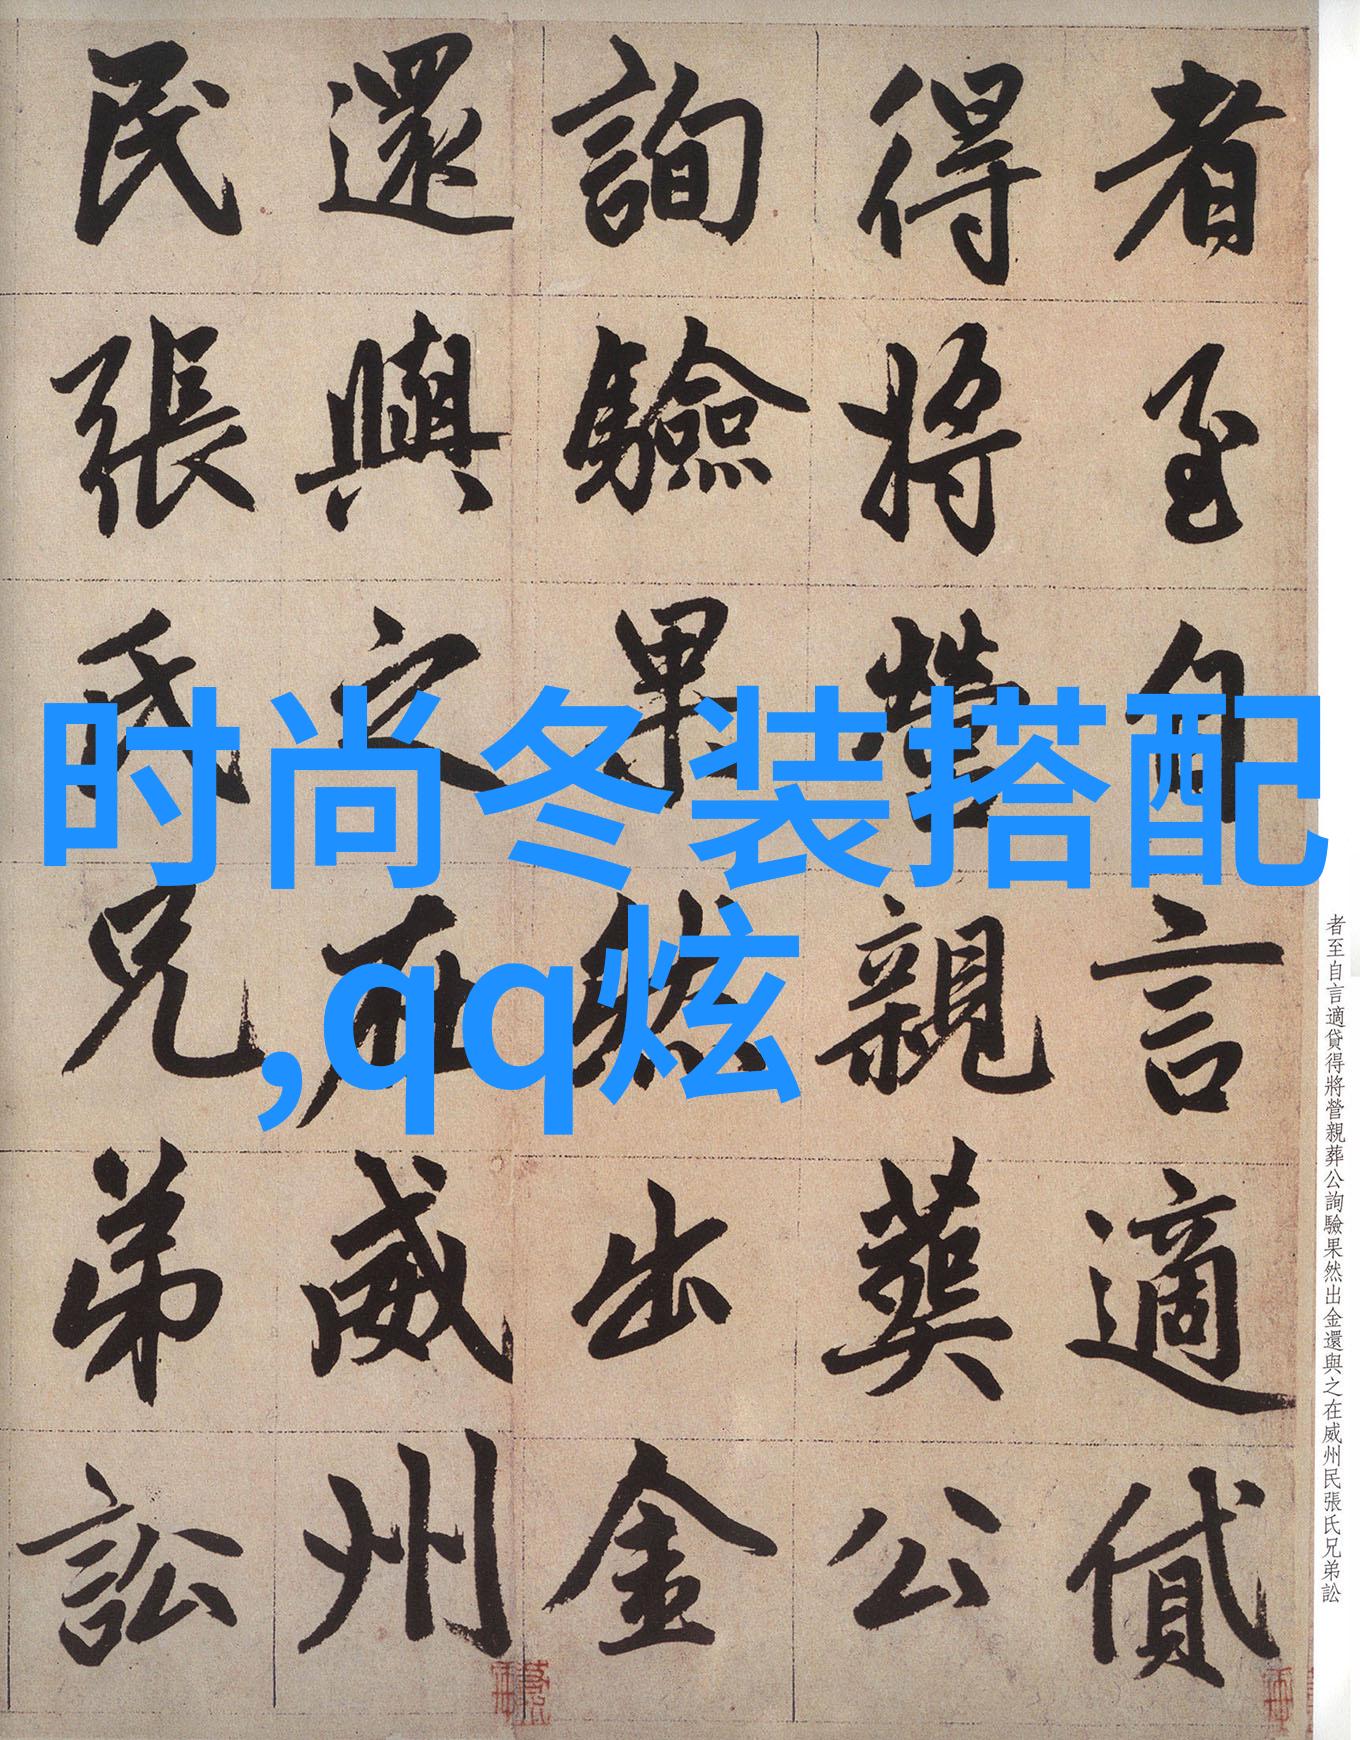 者至自言適貸
得將營親葬公
詢驗果然出金
還與之在威州
民張氏兄弟訟
时尚冬装搭配
,qq炫
者至自言適貸得將營親葬公詢驗果然出金還與之在威州民張氏兄弟訟